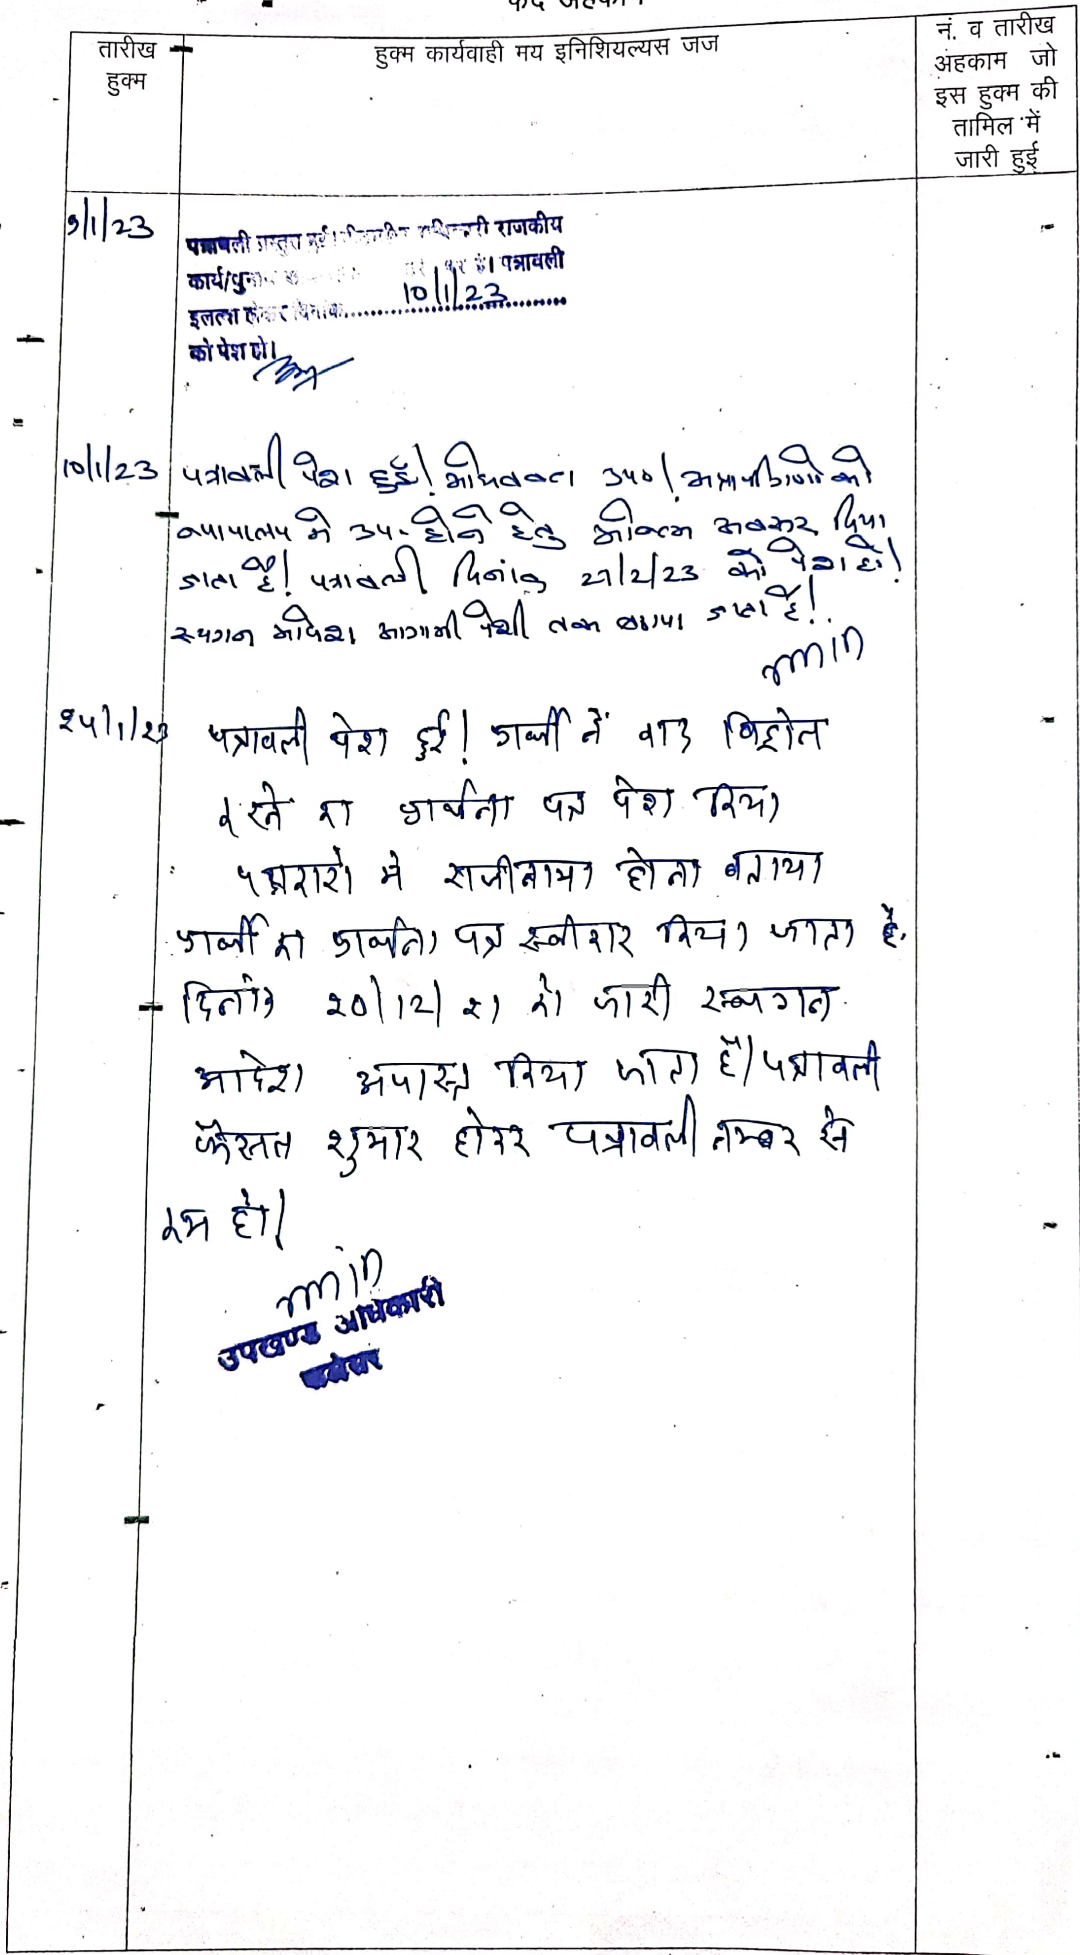 तारीख हुक्म
हुक्म कार्यवाही मय इनिशियल्यस जज
नं. व तारीख
अंहकाम जो
इस हुक्म की
तामिल में
जारी हुई
9/1/23
पत्रावली प्रस्तुत हुई। राजकीय
कार्य/चुनाव पर है। पत्रावली
इलत्ता होकर दिनांक 10/1/23
को पेश हो।
10/1/23 पत्रावली पेश हुई! अधिवक्ता उप०! अप्रार्थीगणो को
न्यायालय मे उप. होने हेतु अन्तिम अवसर दिया
जाता है! पत्रावली दिनांक 27/2/23 को पेश हो!
स्थगन आदेश आगामी पेशी तक बढाया जाता है!
२५/1/23 पत्रावली पेश हुई! प्रार्थी ने वाद विड्रोल
करने का प्रार्थना पत्र पेश किया
पक्षकारो मे राजीनामा होना बताया
प्रार्थी का प्रार्थना पत्र स्वीकार किया जाता है.
दिनांक २०/12/२1 को जारी स्थगन
आदेश अपास्त किया जाता है। पत्रावली
फैसल शुमार होकर पत्रावली नम्बर से
कम हो।
उपखण्ड अधिकारी